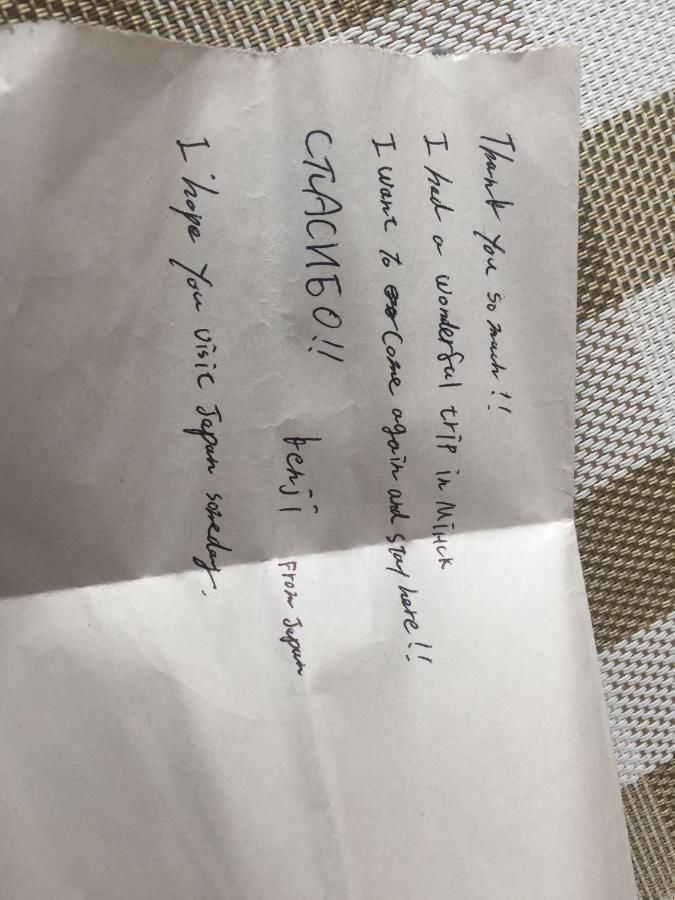 Thank you so much!!
I had a wonderful trip in Мінск
I want to come again and stay here!!
СПАСИБО!! kenji From Japan
I hope you visit Japan someday.